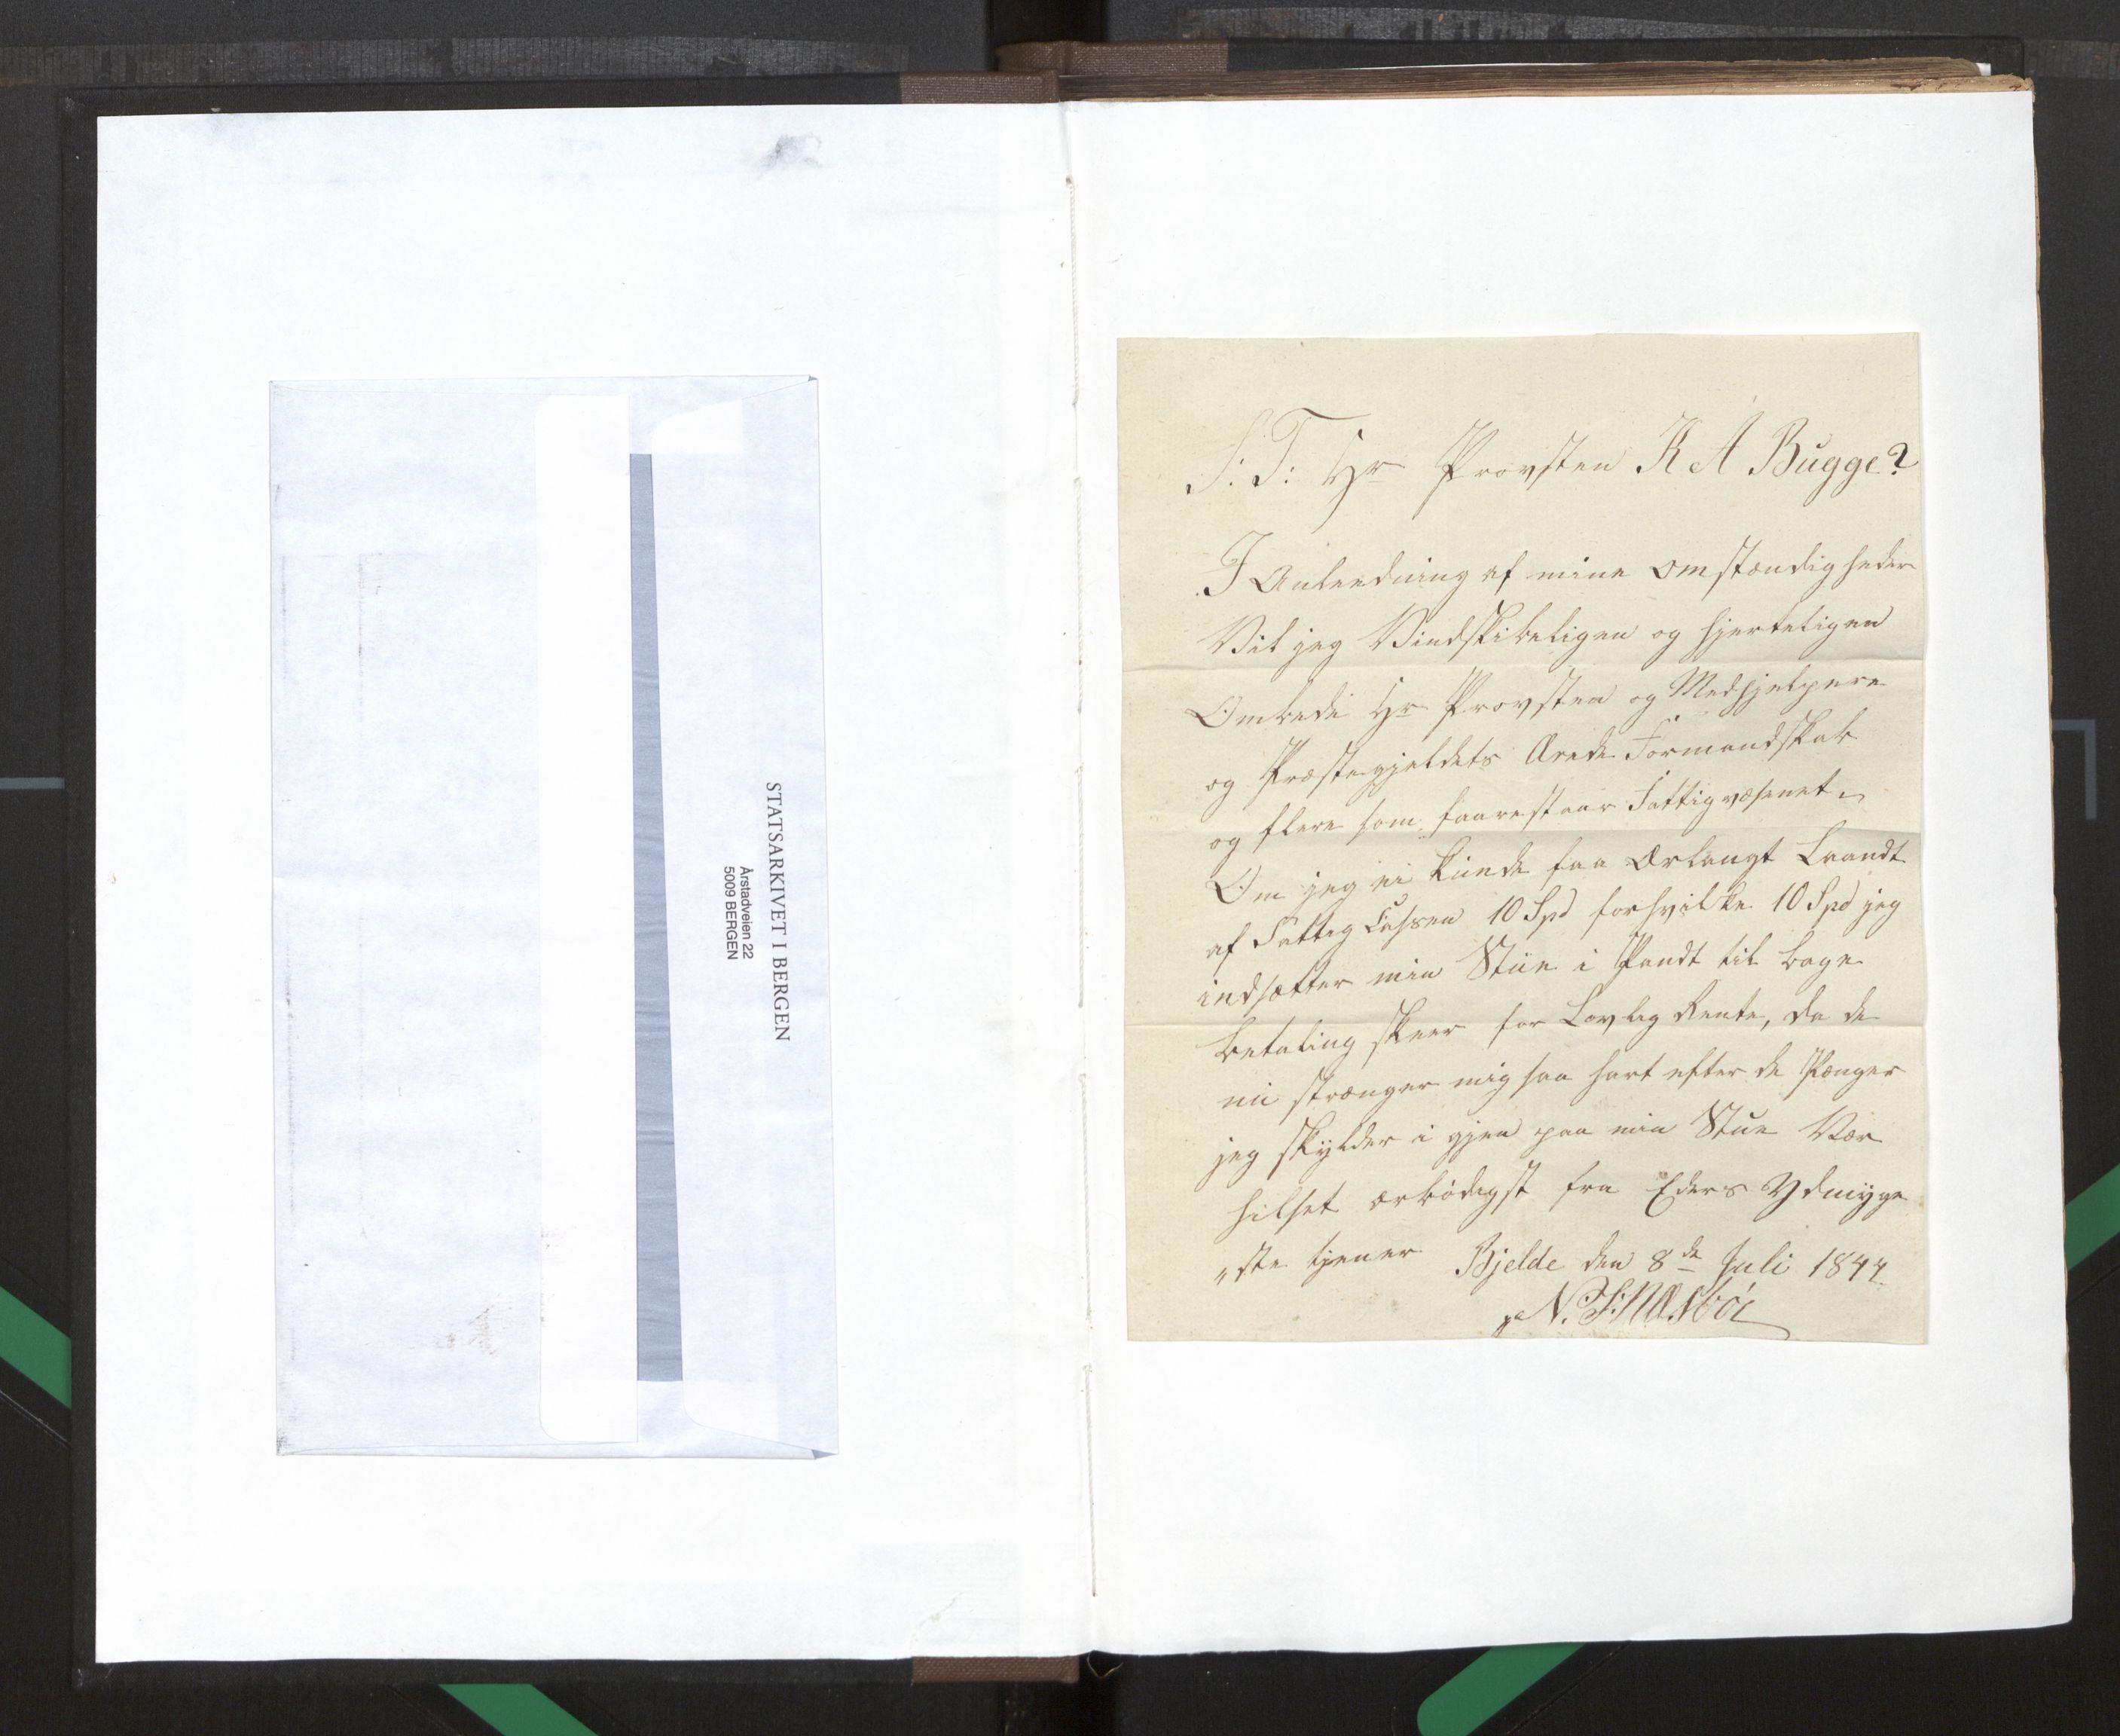 STATSARKIVET I BERGEN
Årstadveien 22
5009 BERGEN
S: T: Hr Provsten K A Bugge?
I Anleedning af mine Omstændigheder
Vil jeg Vindskibeligen og hjerteligen
Ombede Hr Provsten og Medhjelpere
og Præstegjeldets Ærede Formandskab
og flere som faarestaar Fattigvæsenet
Om jeg ei kunde faa Ærlangt Laandt
af Fattig Cassen 10 Spd forhvilke 10 Spd jeg
indsætter min Stue i Pandt til bage
betaling skeer for Lovlig Rente, da de
nu strænger mig saa hart efter de Pænger
jeg skylder i gjen paa min Stue Vær
hilset ærbødigst fra Eders Ydmyge
ste tjener Bjelde den 8de Juli 1844
N.